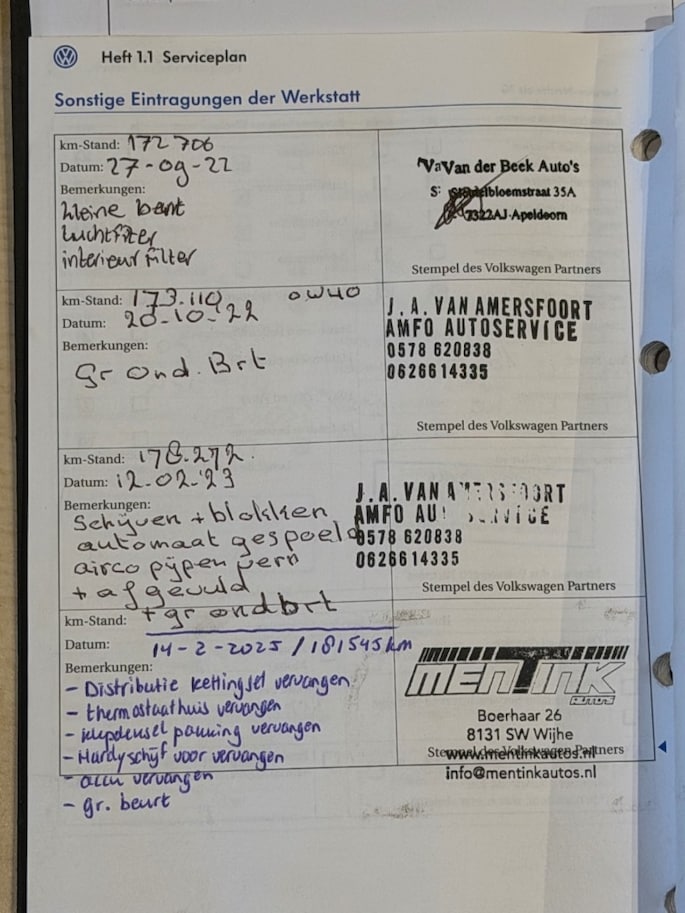 Heft 1.1 Serviceplan
Sonstige Eintragungen der Werkstatt
km-Stand: 172 706
Datum: 27-09-22
Bemerkungen:
kleine bert
luchtfilter
interieur filter
Van der Beek Auto's
7322AJ Apeldoorn
Stempel des Volkswagen Partners
km-Stand: 173.110 0W40
Datum: 20-10-'22
Bemerkungen:
gr ond. Brt
J.A. VAN AMERSFOORT
AMFO AUTOSERVICE
0578 620838
0626614335
Stempel des Volkswagen Partners
km-Stand: 178.272.
Datum: 12-02-'23
Bemerkungen:
Schijven + blokken
automaat gespoeld
airco pijpen vern
+ afgevuld
+ gr ondbrt
J.A. VAN AMERSFOORT
AMFO AUTOSERVICE
0578 620838
0626614335
Stempel des Volkswagen Partners
km-Stand:
Datum: 14-2-2025 / 181545km
Bemerkungen:
- Distributie kettingset vervangen
- thermostaathuis vervangen
- klepdeksel pakking vervangen
- Hardyschijf voor vervangen
- accu vervangen
- gr. beurt
MENTINK
AUTOS
Boerhaar 26
8131 SW Wijhe
Stempel des Volkswagen Partners
www.mentinkautos.nl
info@mentinkautos.nl